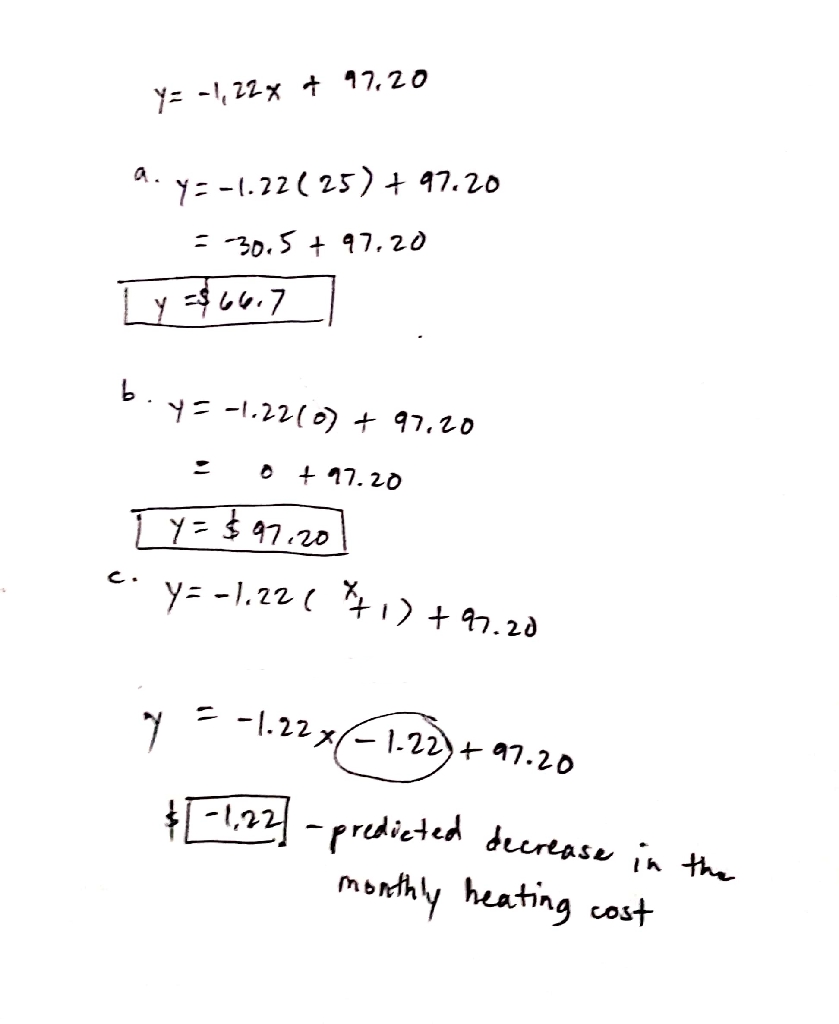 y = -1,22x + 97,20
a. y = -1.22(25) + 97.20
= -30.5 + 97.20
y = $66.7
b. y = -1.22(0) + 97,20
= 0 + 97.20
y = $97.20
c. y = -1.22(x+1) + 97.20
y = -1.22x - 1.22 + 97.20
$ -1,22 - predicted decrease in the
monthly heating cost